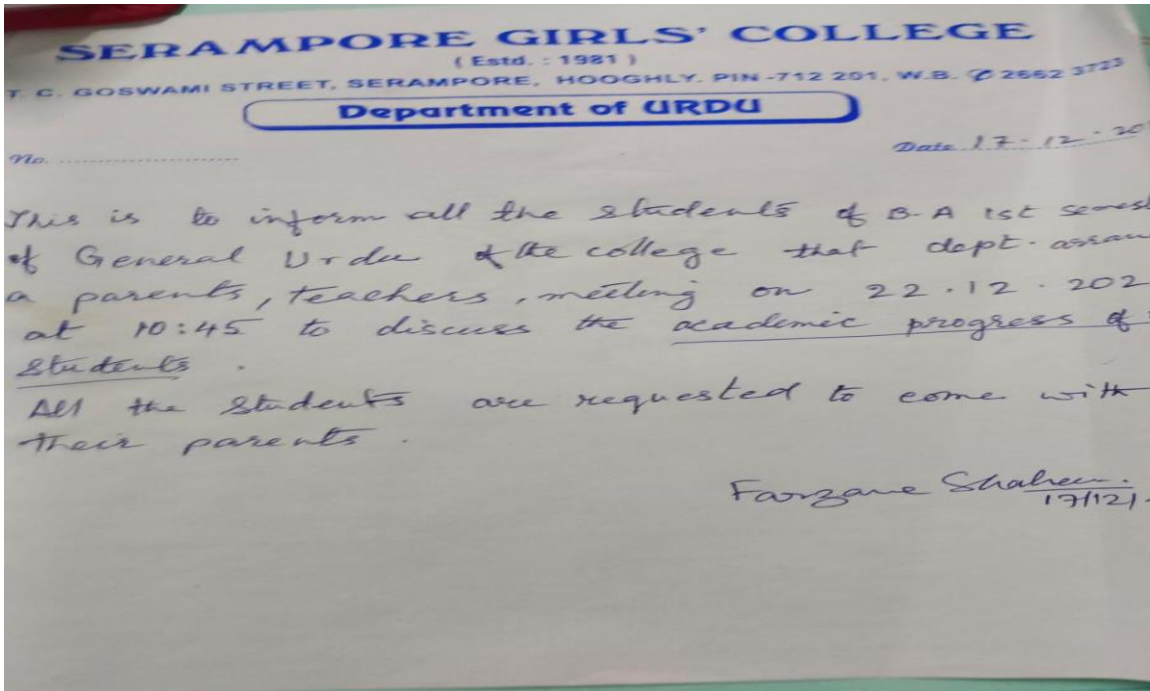 SERAMPORE GIRLS' COLLEGE
( Estd. : 1981 )
T. C. GOSWAMI STREET, SERAMPORE, HOOGHLY. PIN-712 201. W.B. ✆ 2662 3723
Department of URDU
No. ........................ Date 17-12-20
This is to inform all the students of B.A 1st semest
of General Urdu of the college that dept. arran
a parents, teachers, meeting on 22.12.202
at 10:45 to discuss the academic progress of
students.
All the students are requested to come with
their parents.
Farzana Shaheen.
17/12/